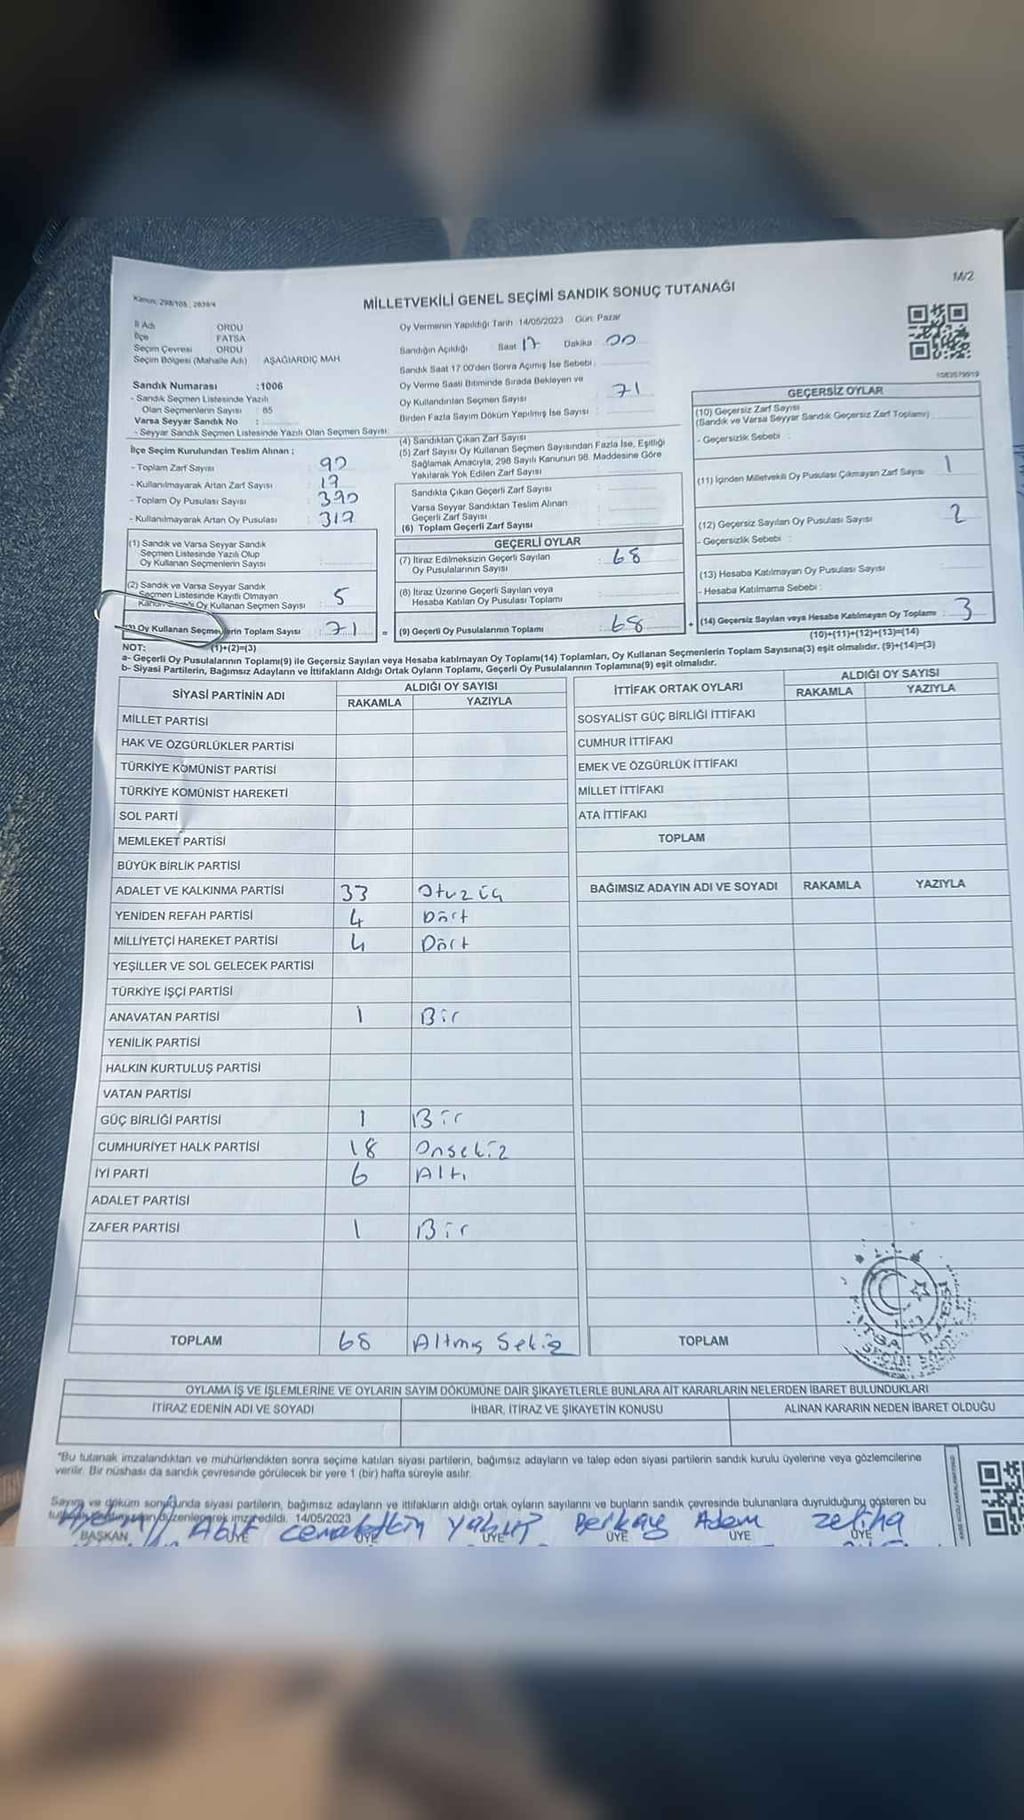 M/2
Kanun: 298/105, 2839/4
MİLLETVEKİLİ GENEL SEÇİMİ SANDIK SONUÇ TUTANAĞI
İl Adı ORDU
İlçe FATSA
Seçim Çevresi ORDU
Seçim Bölgesi (Mahalle Adı) AŞAĞIARDIÇ MAH.
Sandık Numarası :1006
- Sandık Seçmen Listesinde Yazılı
Olan Seçmenlerin Sayısı : 85
Varsa Seyyar Sandık No :
- Seyyar Sandık Seçmen Listesinde Yazılı Olan Seçmen Sayısı:
İlçe Seçim Kurulundan Teslim Alınan :
- Toplam Zarf Sayısı 90
- Kullanılmayarak Artan Zarf Sayısı : 19
- Toplam Oy Pusulası Sayısı 390
- Kullanılmayarak Artan Oy Pusulası : 319
(1) Sandık ve Varsa Seyyar Sandık
Seçmen Listesinde Yazılı Olup
Oy Kullanan Seçmenlerin Sayısı
(2) Sandık ve Varsa Seyyar Sandık
Seçmen Listesinde Kayıtlı Olmayan
Oy Kullanan Seçmen Sayısı 5
(3) Oy Kullanan Seçmenlerin Toplam Sayısı : 71
(1)+(2)=(3)
Oy Vermenin Yapıldığı Tarih 14/05/2023 Gün: Pazar
Sandığın Açıldığı Saat 17 Dakika 00
Sandık Saat 17:00'den Sonra Açılmış İse Sebebi :
Oy Verme Saati Bitiminde Sırada Bekleyen ve
Oy Kullandırılan Seçmen Sayısı 71
Birden Fazla Sayım Döküm Yapılmış İse Sayısı :
(4) Sandıktan Çıkan Zarf Sayısı
(5) Zarf Sayısı Oy Kullanan Seçmen Sayısından Fazla İse, Eşitliği
Sağlamak Amacıyla, 298 Sayılı Kanunun 98. Maddesine Göre
Yakılarak Yok Edilen Zarf Sayısı
Sandıkta Çıkan Geçerli Zarf Sayısı
Varsa Seyyar Sandıktan Teslim Alınan
Geçerli Zarf Sayısı
(6) Toplam Geçerli Zarf Sayısı
GEÇERLİ OYLAR
(7) İtiraz Edilmeksizin Geçerli Sayılan
Oy Pusulalarının Sayısı : 68
(8) İtiraz Üzerine Geçerli Sayılan veya
Hesaba Katılan Oy Pusulası Toplamı
= (9) Geçerli Oy Pusulalarının Toplamı : 68
GEÇERSİZ OYLAR
(10) Geçersiz Zarf Sayısı
(Sandık ve Varsa Seyyar Sandık Geçersiz Zarf Toplamı)
- Geçersizlik Sebebi :
(11) İçinden Milletvekili Oy Pusulası Çıkmayan Zarf Sayısı 1
(12) Geçersiz Sayılan Oy Pusulası Sayısı 2
- Geçersizlik Sebebi :
(13) Hesaba Katılmayan Oy Pusulası Sayısı
- Hesaba Katılmama Sebebi :
+ (14) Geçersiz Sayılan veya Hesaba Katılmayan Oy Toplamı : 3
(10)+(11)+(12)+(13)=(14)
NOT:
a- Geçerli Oy Pusulalarının Toplamı(9) ile Geçersiz Sayılan veya Hesaba katılmayan Oy Toplamı(14) Toplamları, Oy Kullanan Seçmenlerin Toplam Sayısına(3) eşit olmalıdır. (9)+(14)=(3)
b- Siyasi Partilerin, Bağımsız Adayların ve İttifakların Aldığı Ortak Oyların Toplamı, Geçerli Oy Pusulalarının Toplamına(9) eşit olmalıdır.
SİYASİ PARTİNİN ADI ALDIĞI OY SAYISI
RAKAMLA YAZIYLA
MİLLET PARTİSİ
HAK VE ÖZGÜRLÜKLER PARTİSİ
TÜRKİYE KOMÜNİST PARTİSİ
TÜRKİYE KOMÜNİST HAREKETİ
SOL PARTİ
MEMLEKET PARTİSİ
BÜYÜK BİRLİK PARTİSİ
ADALET VE KALKINMA PARTİSİ 33 Otuz üç
YENİDEN REFAH PARTİSİ 4 Dört
MİLLİYETÇİ HAREKET PARTİSİ 4 Dört
YEŞİLLER VE SOL GELECEK PARTİSİ
TÜRKİYE İŞÇİ PARTİSİ
ANAVATAN PARTİSİ 1 Bir
YENİLİK PARTİSİ
HALKIN KURTULUŞ PARTİSİ
VATAN PARTİSİ
GÜÇ BİRLİĞİ PARTİSİ 1 Bir
CUMHURİYET HALK PARTİSİ 18 Onsekiz
İYİ PARTİ 6 Altı
ADALET PARTİSİ
ZAFER PARTİSİ 1 Bir
TOPLAM 68 Altmış Sekiz
İTTİFAK ORTAK OYLARI ALDIĞI OY SAYISI
RAKAMLA YAZIYLA
SOSYALİST GÜÇ BİRLİĞİ İTTİFAKI
CUMHUR İTTİFAKI
EMEK VE ÖZGÜRLÜK İTTİFAKI
MİLLET İTTİFAKI
ATA İTTİFAKI
TOPLAM
BAĞIMSIZ ADAYIN ADI VE SOYADI RAKAMLA YAZIYLA
TOPLAM
OYLAMA İŞ VE İŞLEMLERİNE VE OYLARIN SAYIM DÖKÜMÜNE DAİR ŞİKAYETLERLE BUNLARA AİT KARARLARIN NELERDEN İBARET BULUNDUKLARI
İTİRAZ EDENİN ADI VE SOYADI İHBAR, İTİRAZ VE ŞİKAYETİN KONUSU ALINAN KARARIN NEDEN İBARET OLDUĞU
"Bu tutanak imzalandıktan ve mühürlendikten sonra seçime katılan siyasi partilerin, bağımsız adayların ve talep eden siyasi partilerin sandık kurulu üyelerine veya gözlemcilerine
verilir. Bir nüshası da sandık çevresinde görülecek bir yere 1 (bir) hafta süreyle asılır.
Sayım ve döküm sonucunda siyasi partilerin, bağımsız adayların ve ittifakların aldığı ortak oyların sayılarını ve bunların sandık çevresinde bulunanlara duyrulduğunu gösteren bu
düzenlenerek imza edildi. 14/05/2023
Cemalettin Yakup Berkay Adem Zeliha
BAŞKAN ÜYE ÜYE ÜYE ÜYE ÜYE ÜYE